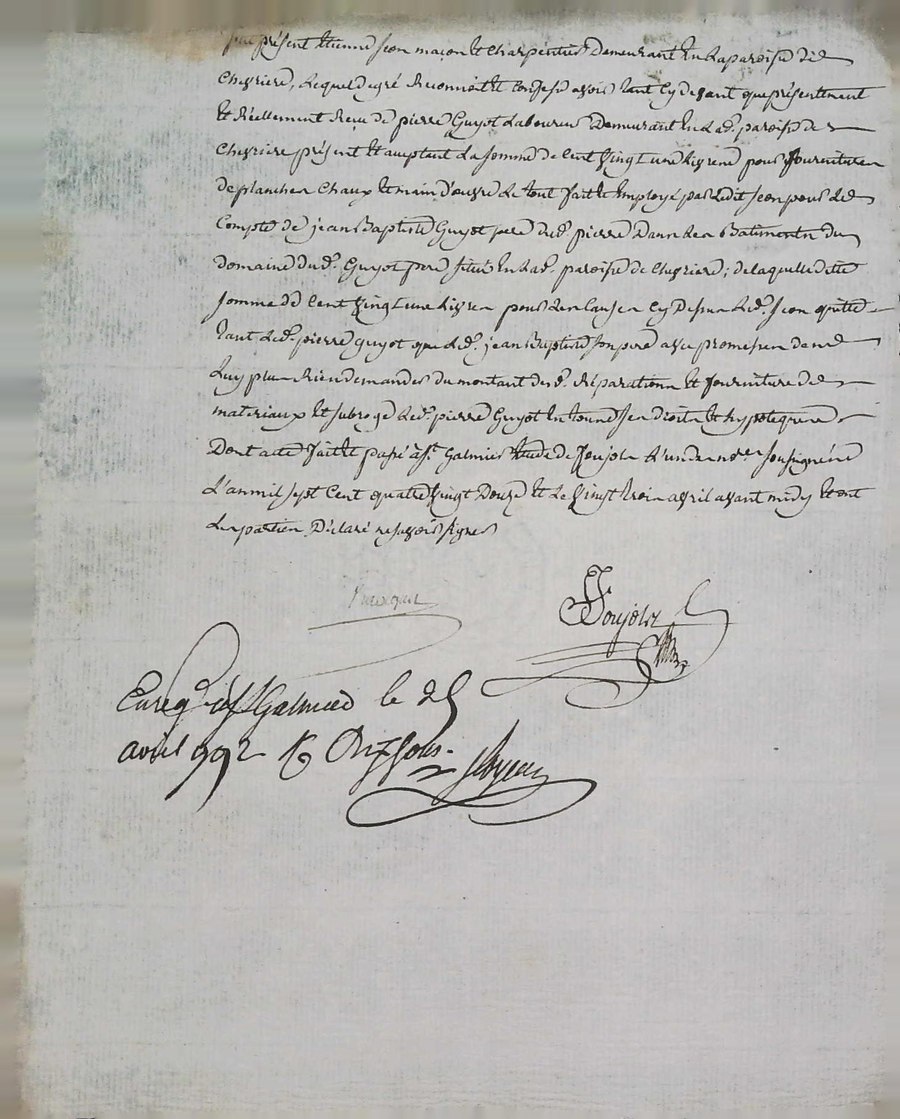 fut présent Etienne Jeon maçon et charpentier demeurant en la paroisse de
Chevriere, lequel de gré reconnoit et confesse avoir tant cy devant que présentement
et réellement reçu de pierre Guyot laboureur demeurant en lad. paroisse de
Chevriere présent et acceptant la somme de Cent vingt une livres pour fourniture
de plancher chaux et main d'œuvre le tout fait et employé par ledit Jeon pour le
Compte de jean Baptiste Guyot pere dud. pierre dans les Batiments du
domaine dud. Guyot pere situé en lad. paroisse de Chevriere; de laquelle dette
somme de Cent vingt une livres pour les causes cy dessus led. Jeon quitte
tant led. pierre Guyot que led. jean Baptiste son pere avec promesse de ne
luy plus rien demander du montant desd. réparations et fourniture de
materiaux et subroge led. pierre Guyot en tous ses droits et hypoteques
Dont acte fait et passé à St. Galmier étude de Foujols l'un des nores. soussignés
L'an mil sept Cent quatre vingt Douze et le vingt trois avril avant midy et ont
les parties Déclaré ne savoir signer
Foujols
Enreg. à St Galmier le 25
avril 992 R Onze sous